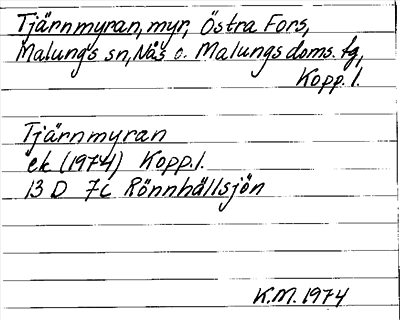 Tjärnmyran, myr, Östra Fors,
Malungs sn, Nås o. Malungs doms. tg,
Kopp. l.
Tjärnmyran
ek (1974) Kopp. l.
13 D 7c Rönnhällsjön
K.M. 1974